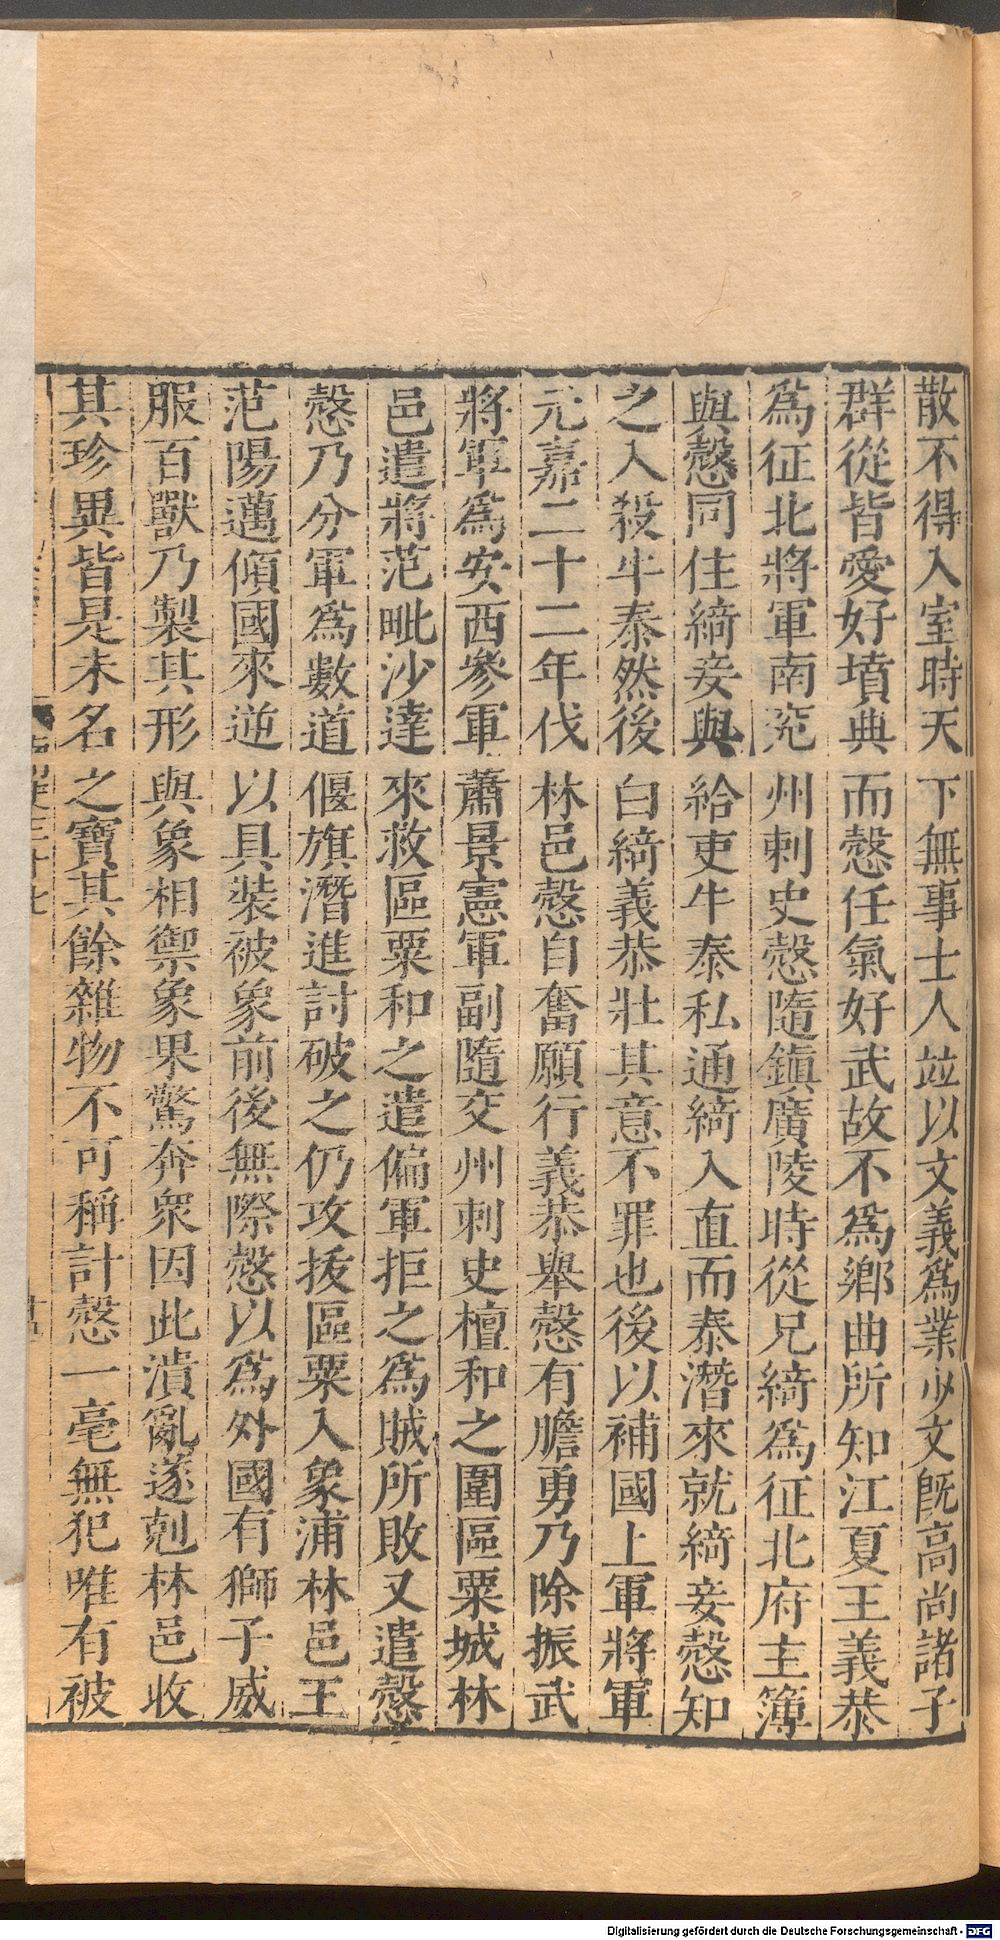 散不得入室時天下無事士人竝以文義爲業少文旣高尚諸子
群從皆愛好墳典而慤任氣好武故不爲鄕曲所知江夏王義恭
爲征北將軍南兖州刺史慤隨鎮廣陵時從兄綺爲征北府主簿
與慤同住綺妾與給吏牛泰私通綺入直而泰潛來就綺妾慤知
之入殺牛泰然後白綺義恭壯其意不罪也後以補國上軍將軍
元嘉二十二年伐林邑慤自奮願行義恭舉慤有膽勇乃除振武
將軍爲安西參軍蕭景憲軍副隨交州刺史檀和之圍區粟城林
邑遣將范毗沙達來救區粟和之遣偏軍拒之爲賊所敗又遣慤
慤乃分軍爲數道偃旗潛進討破之仍攻拔區粟入象浦林邑王
范陽邁傾國來逆以具裝被象前後無際慤以爲外國有獅子威
服百獸乃製其形與象相禦象果驚奔衆因此潰亂遂剋林邑收
其珍異皆是未名之寶其餘雜物不可稱計慤一毫無犯唯有被
南史三十七
Digitalisierung gefördert durch die Deutsche Forschungsgemeinschaft - DFG